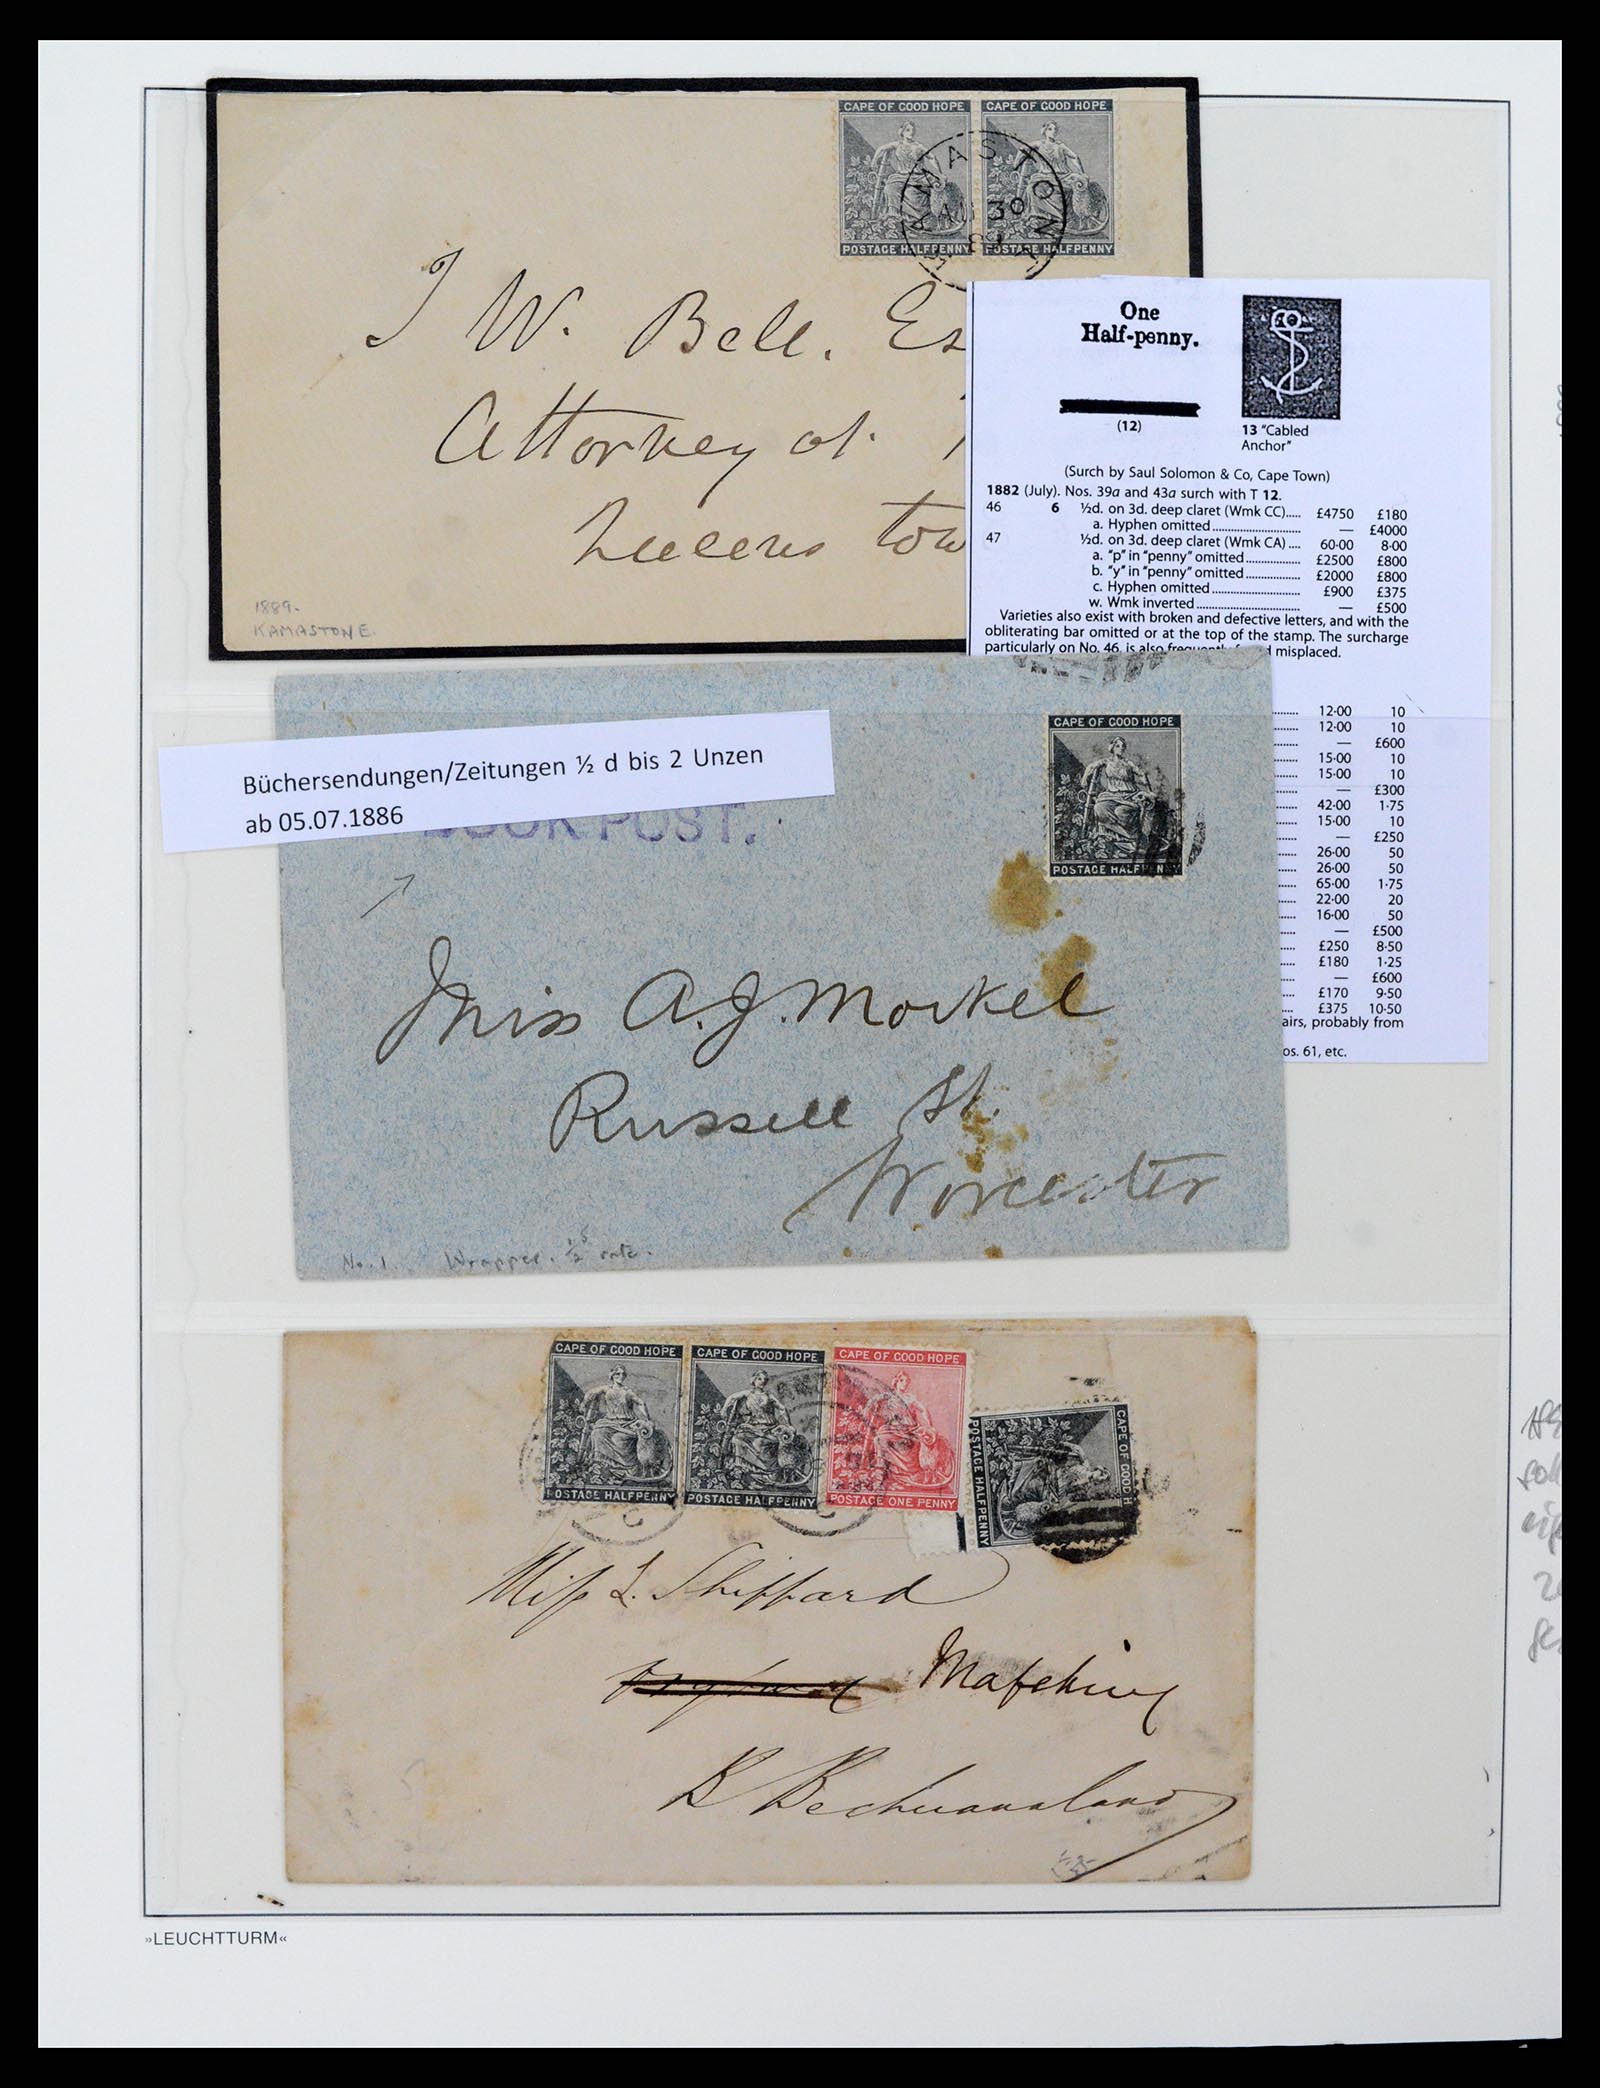 CAPE OF GOOD HOPE CAPE OF GOOD HOPE
POSTAGE HALFPENNY POSTAGE HALFPENNY
AMASTON
30
J W. Bell. Es
Attorney at
town
1889.
KAMASTONE.
One
Half-penny.
(12)
13 "Cabled
Anchor"
(Surch by Saul Solomon & Co, Cape Town)
1882 (July). Nos. 39a and 43a surch with T 12.
46 6 ½d. on 3d. deep claret (Wmk CC)..... £4750 £180
a. Hyphen omitted ........................... — £4000
47 ½d. on 3d. deep claret (Wmk CA) .... 60·00 8·00
a. "p" in "penny" omitted ................. £2500 £800
b. "y" in "penny" omitted ................. £2000 £800
c. Hyphen omitted ........................... £900 £375
w. Wmk inverted .............................. — £500
Varieties also exist with broken and defective letters, and with the
obliterating bar omitted or at the top of the stamp. The surcharge
particularly on No. 46, is also frequently misplaced.
12·00 10
12·00 10
— £600
15·00 10
15·00 10
— £300
42·00 1·75
15·00 10
— £250
26·00 50
26·00 50
65·00 1·75
22·00 20
16·00 50
— £500
£250 8·50
£180 1·25
— £600
£170 9·50
£375 10·50
airs, probably from
os. 61, etc.
Büchersendungen/Zeitungen ½ d bis 2 Unzen
ab 05.07.1886
BOOK POST.
CAPE OF GOOD HOPE
POSTAGE HALFPENNY
Miss A. J. Morkel
Russell St.
Worcester
No. 1. Wrapper. ½ rate.
CAPE OF GOOD HOPE CAPE OF GOOD HOPE CAPE OF GOOD HOPE
POSTAGE HALFPENNY POSTAGE HALFPENNY POSTAGE ONE PENNY
CAPE OF GOOD H
POSTAGE HALFPENNY
Miss L. Shippard
Mafeking
B Bechuanaland
»LEUCHTTURM«